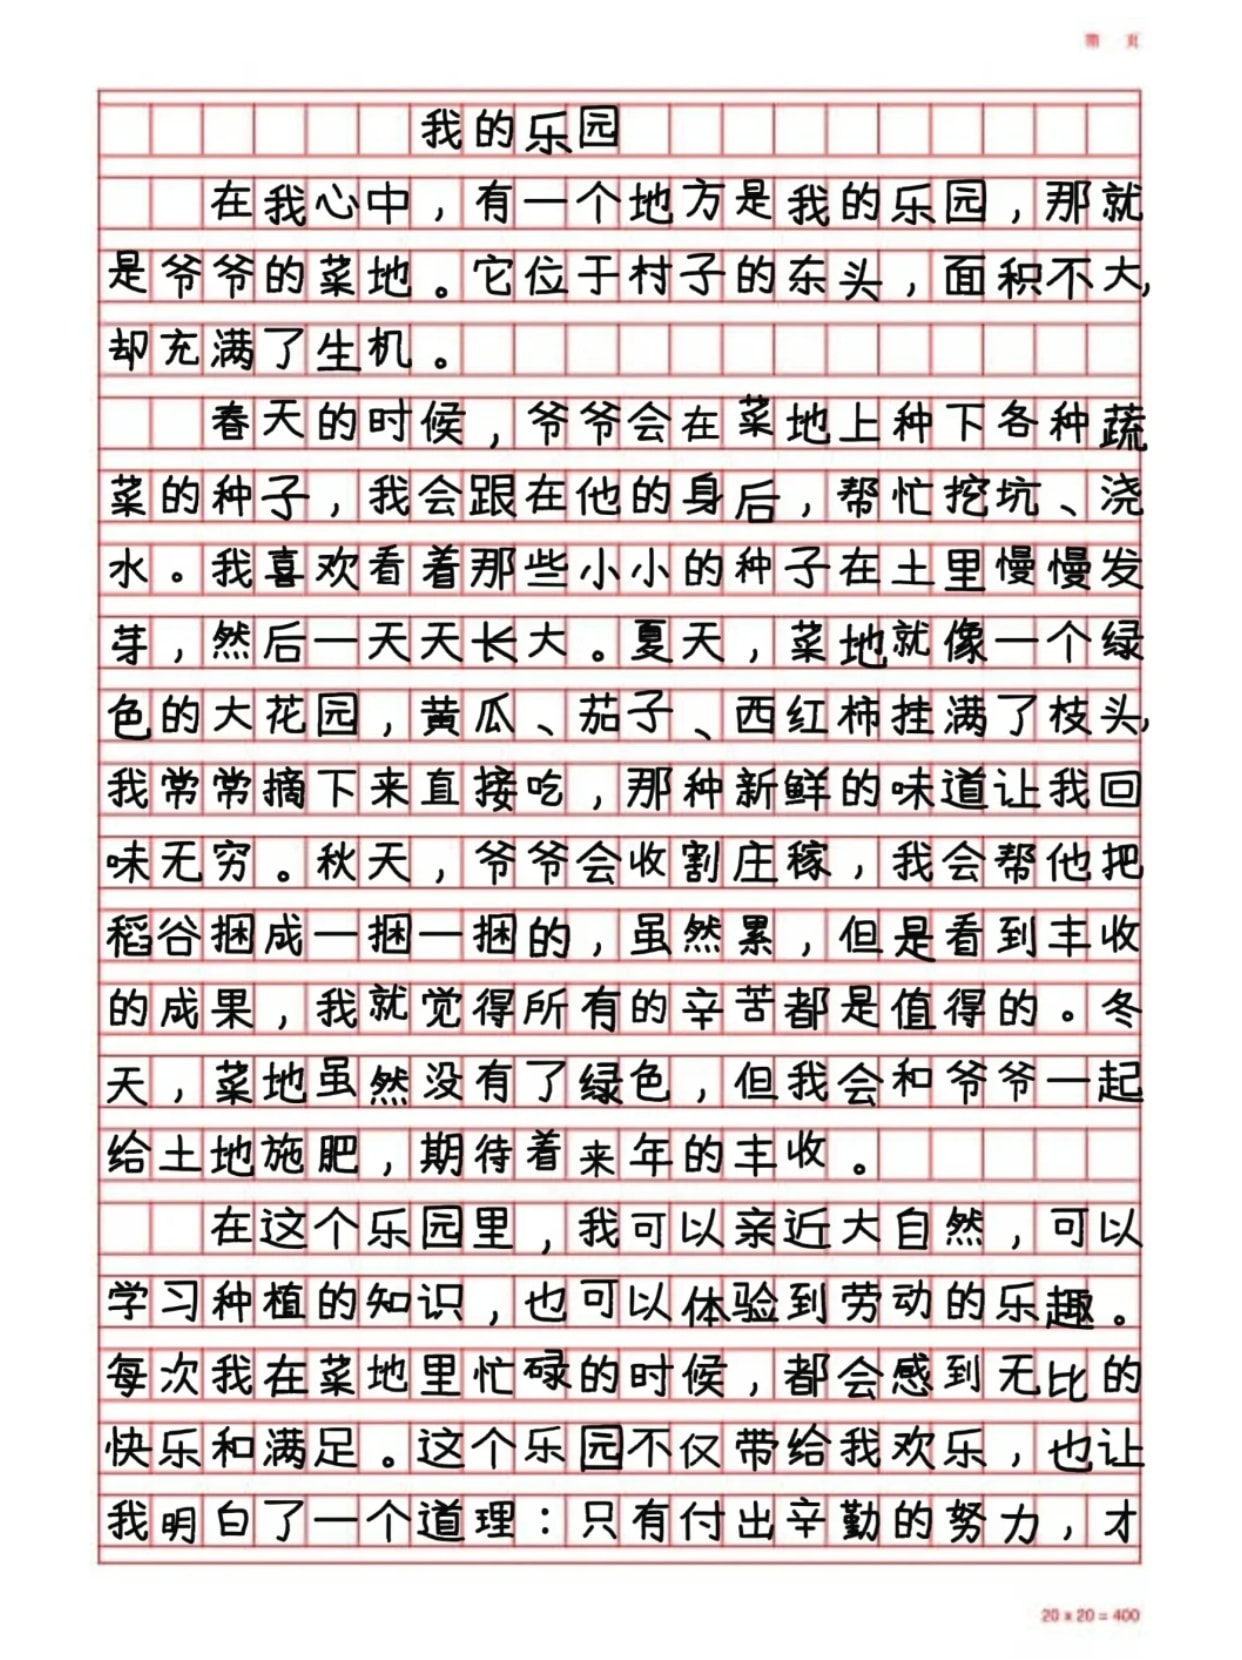 第 页
我的乐园
在我心中，有一个地方是我的乐园，那就
是爷爷的菜地。它位于村子的东头，面积不大，
却充满了生机。
春天的时候，爷爷会在菜地上种下各种蔬
菜的种子，我会跟在他的身后，帮忙挖坑、浇
水。我喜欢看着那些小小的种子在土里慢慢发
芽，然后一天天长大。夏天，菜地就像一个绿
色的大花园，黄瓜、茄子、西红柿挂满了枝头，
我常常摘下来直接吃，那种新鲜的味道让我回
味无穷。秋天，爷爷会收割庄稼，我会帮他把
稻谷捆成一捆一捆的，虽然累，但是看到丰收
的成果，我就觉得所有的辛苦都是值得的。冬
天，菜地虽然没有了绿色，但我会和爷爷一起
给土地施肥，期待着来年的丰收。
在这个乐园里，我可以亲近大自然，可以
学习种植的知识，也可以体验到劳动的乐趣。
每次我在菜地里忙碌的时候，都会感到无比的
快乐和满足。这个乐园不仅带给我欢乐，也让
我明白了一个道理：只有付出辛勤的努力，才
20 x 20 = 400